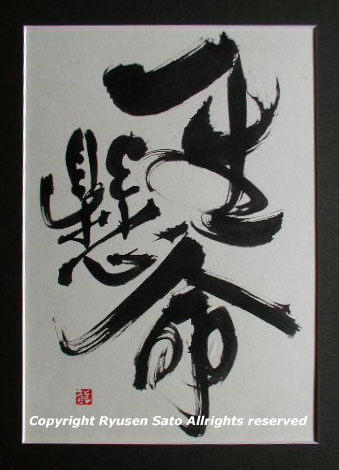 一生懸命
龍
Copyright Ryusen Sato Allrights reserved